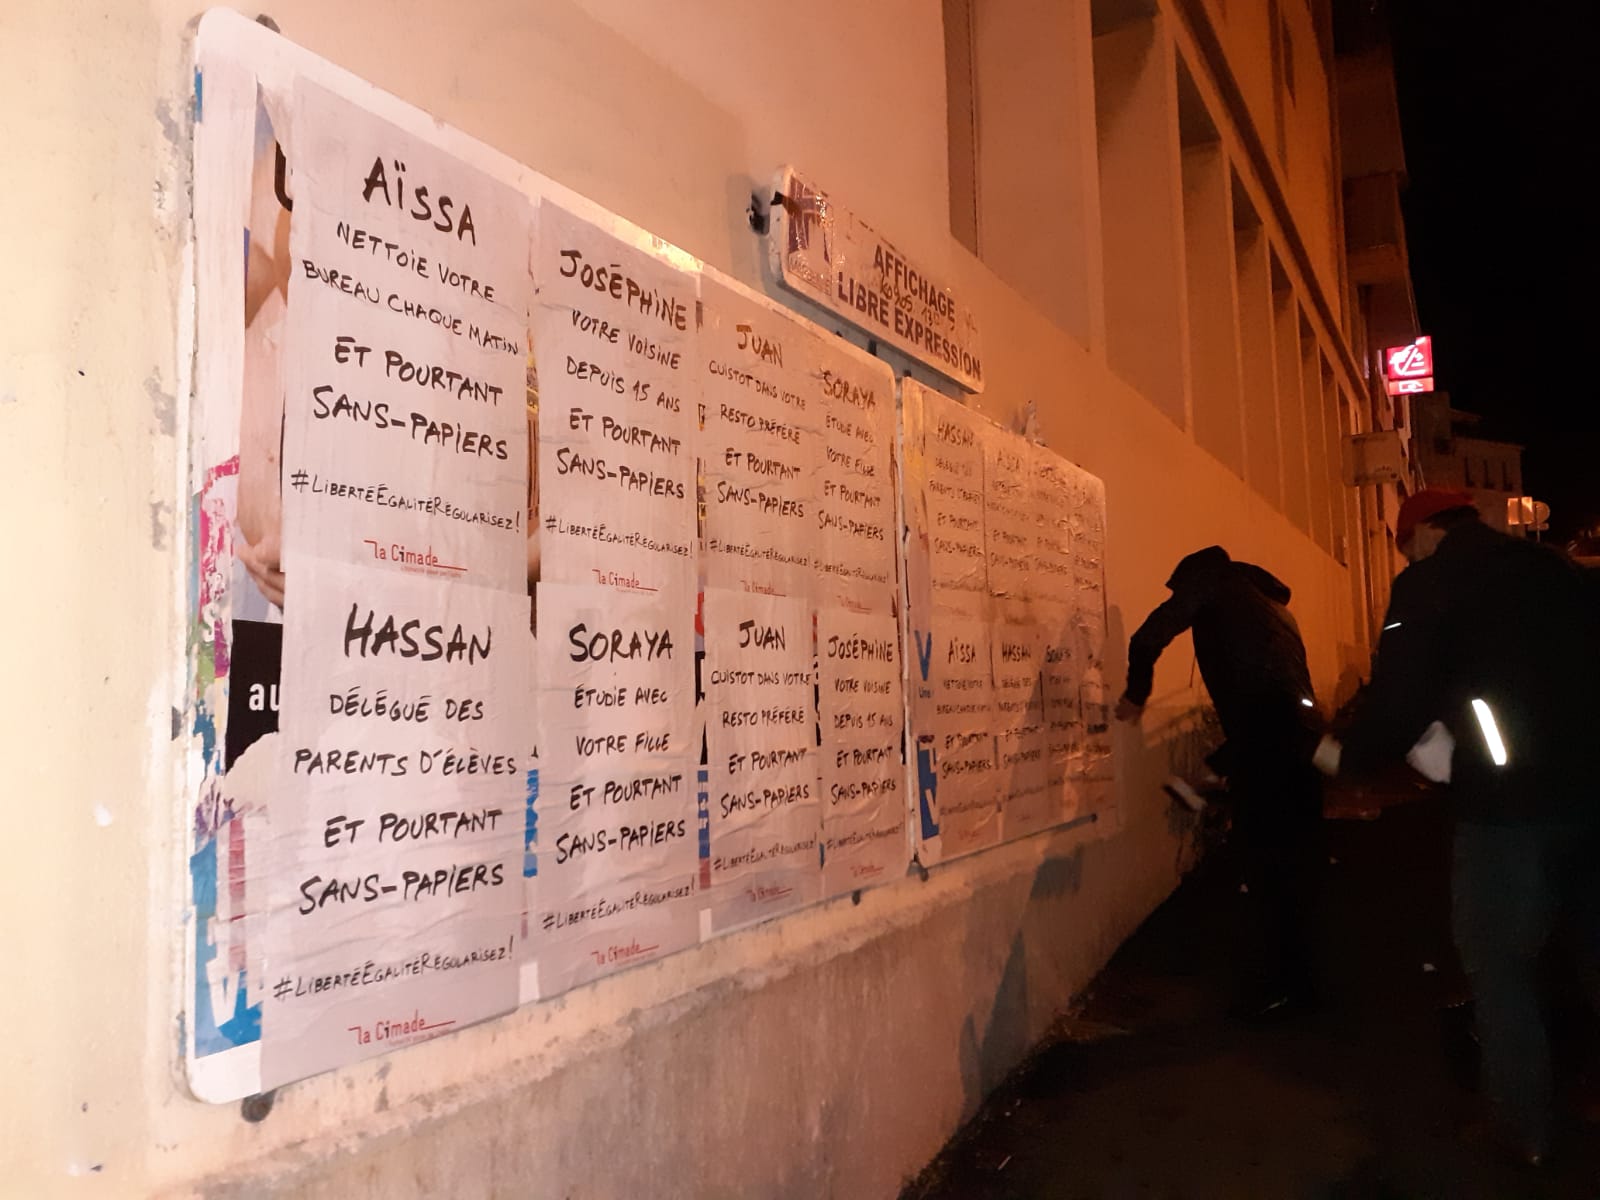 AÏSSA
NETTOIE VOTRE
BUREAU CHAQUE MATIN
ET POURTANT
SANS-PAPIERS
#LIBERTÉEGALITÉRÉGULARISEZ!
la Cimade
JOSÉPHINE
VOTRE VOISINE
DEPUIS 15 ANS
ET POURTANT
SANS-PAPIERS
#LIBERTÉEGALITÉRÉGULARISEZ!
la Cimade
JUAN
CUISTOT DANS VOTRE
RESTO PRÉFÉRÉ
ET POURTANT
SANS-PAPIERS
#LIBERTÉEGALITÉRÉGULARISEZ!
la Cimade
SORAYA
ÉTUDIE AVEC
VOTRE FILLE
ET POURTANT
SANS-PAPIERS
#LIBERTÉEGALITÉRÉGULARISEZ!
la Cimade
AFFICHAGE
LIBRE EXPRESSION
HASSAN
DÉLÉGUÉ DES
PARENTS D'ÉLÈVES
ET POURTANT
SANS-PAPIERS
AÏSSA
ET POURTANT
SANS-PAPIERS
au
HASSAN
DÉLÉGUÉ DES
PARENTS D'ÉLÈVES
ET POURTANT
SANS-PAPIERS
#LIBERTÉEGALITÉRÉGULARISEZ!
la Cimade
SORAYA
ÉTUDIE AVEC
VOTRE FILLE
ET POURTANT
SANS-PAPIERS
#LIBERTÉEGALITÉRÉGULARISEZ!
la Cimade
JUAN
CUISTOT DANS VOTRE
RESTO PRÉFÉRÉ
ET POURTANT
SANS-PAPIERS
#LIBERTÉEGALITÉRÉGULARISEZ!
la Cimade
JOSÉPHINE
VOTRE VOISINE
DEPUIS 15 ANS
ET POURTANT
SANS-PAPIERS
#LIBERTÉEGALITÉRÉGULARISEZ!
la Cimade
AÏSSA
NETTOIE VOTRE
BUREAU CHAQUE MATIN
ET POURTANT
SANS-PAPIERS
HASSAN
DÉLÉGUÉ DES
PARENTS D'ÉLÈVES
ET POURTANT
SANS-PAPIERS
SORAYA